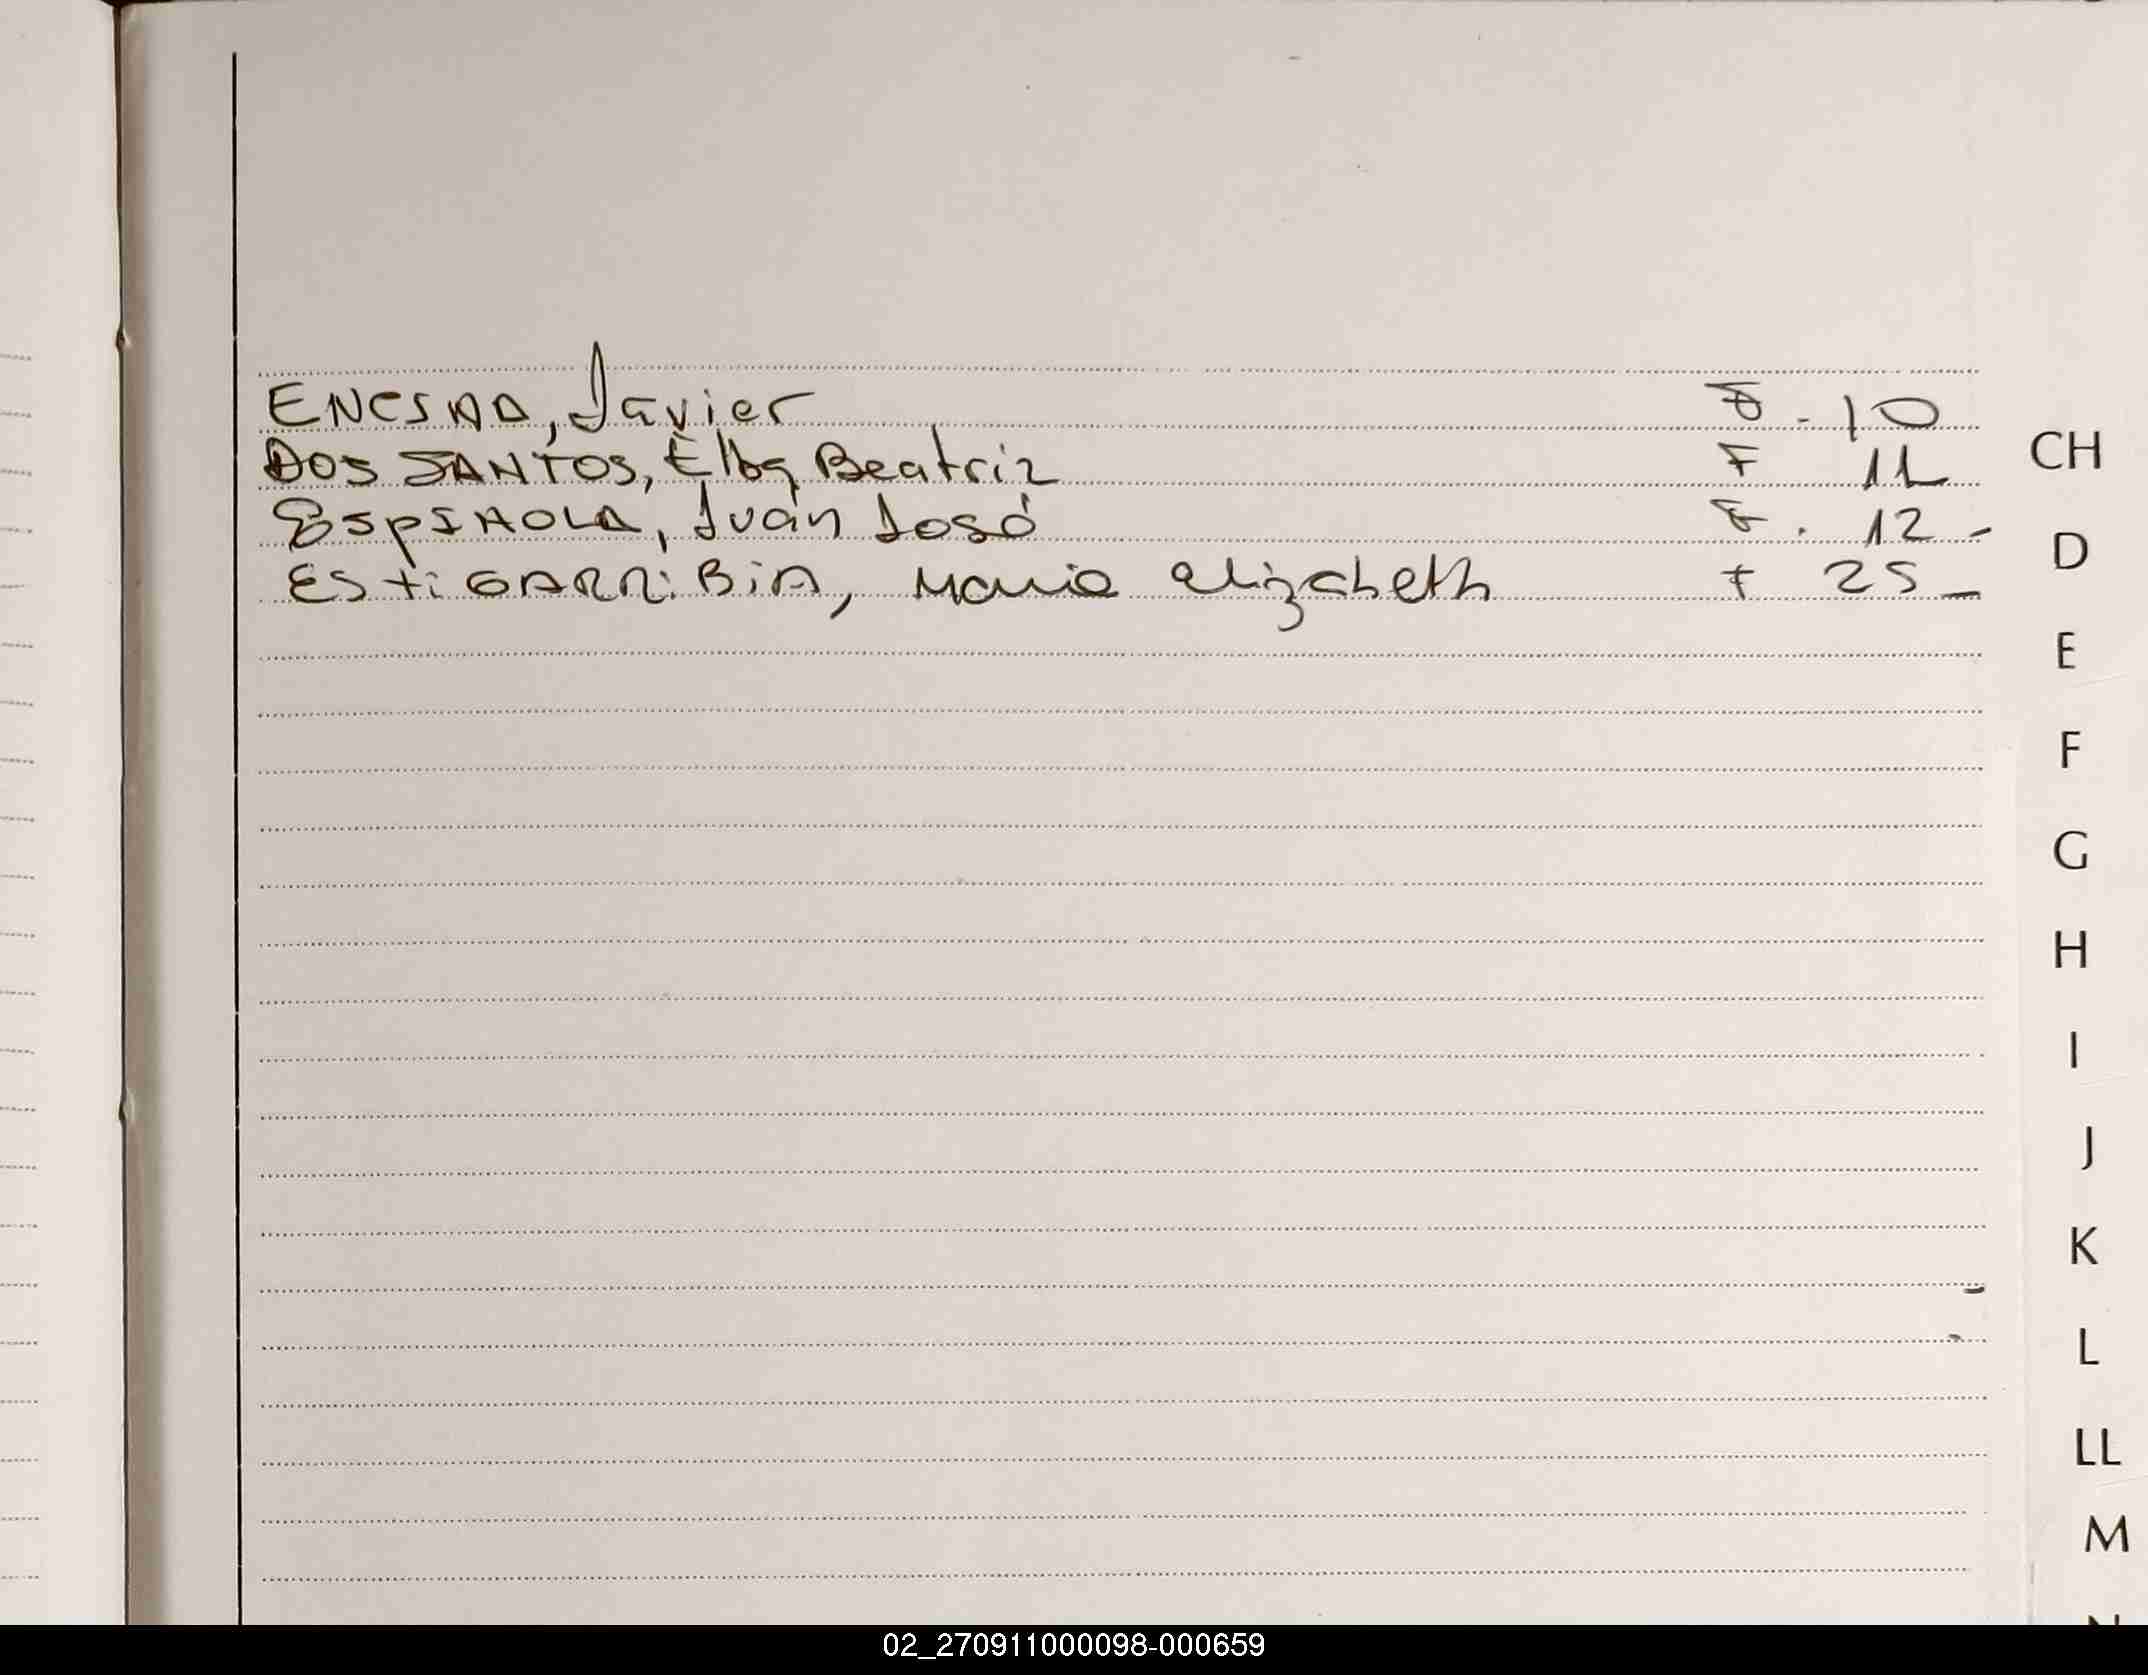 ENCSAD, Javier F - 10
DOS SANTOS, Elba Beatriz F 11
ESPINOLA, Juán José F. 12 -
EStiGARRiBiA, Maria Elizabeth F 25 -
CH
D
E
F
G
H
I
J
K
L
LL
M
02_270911000098-000659